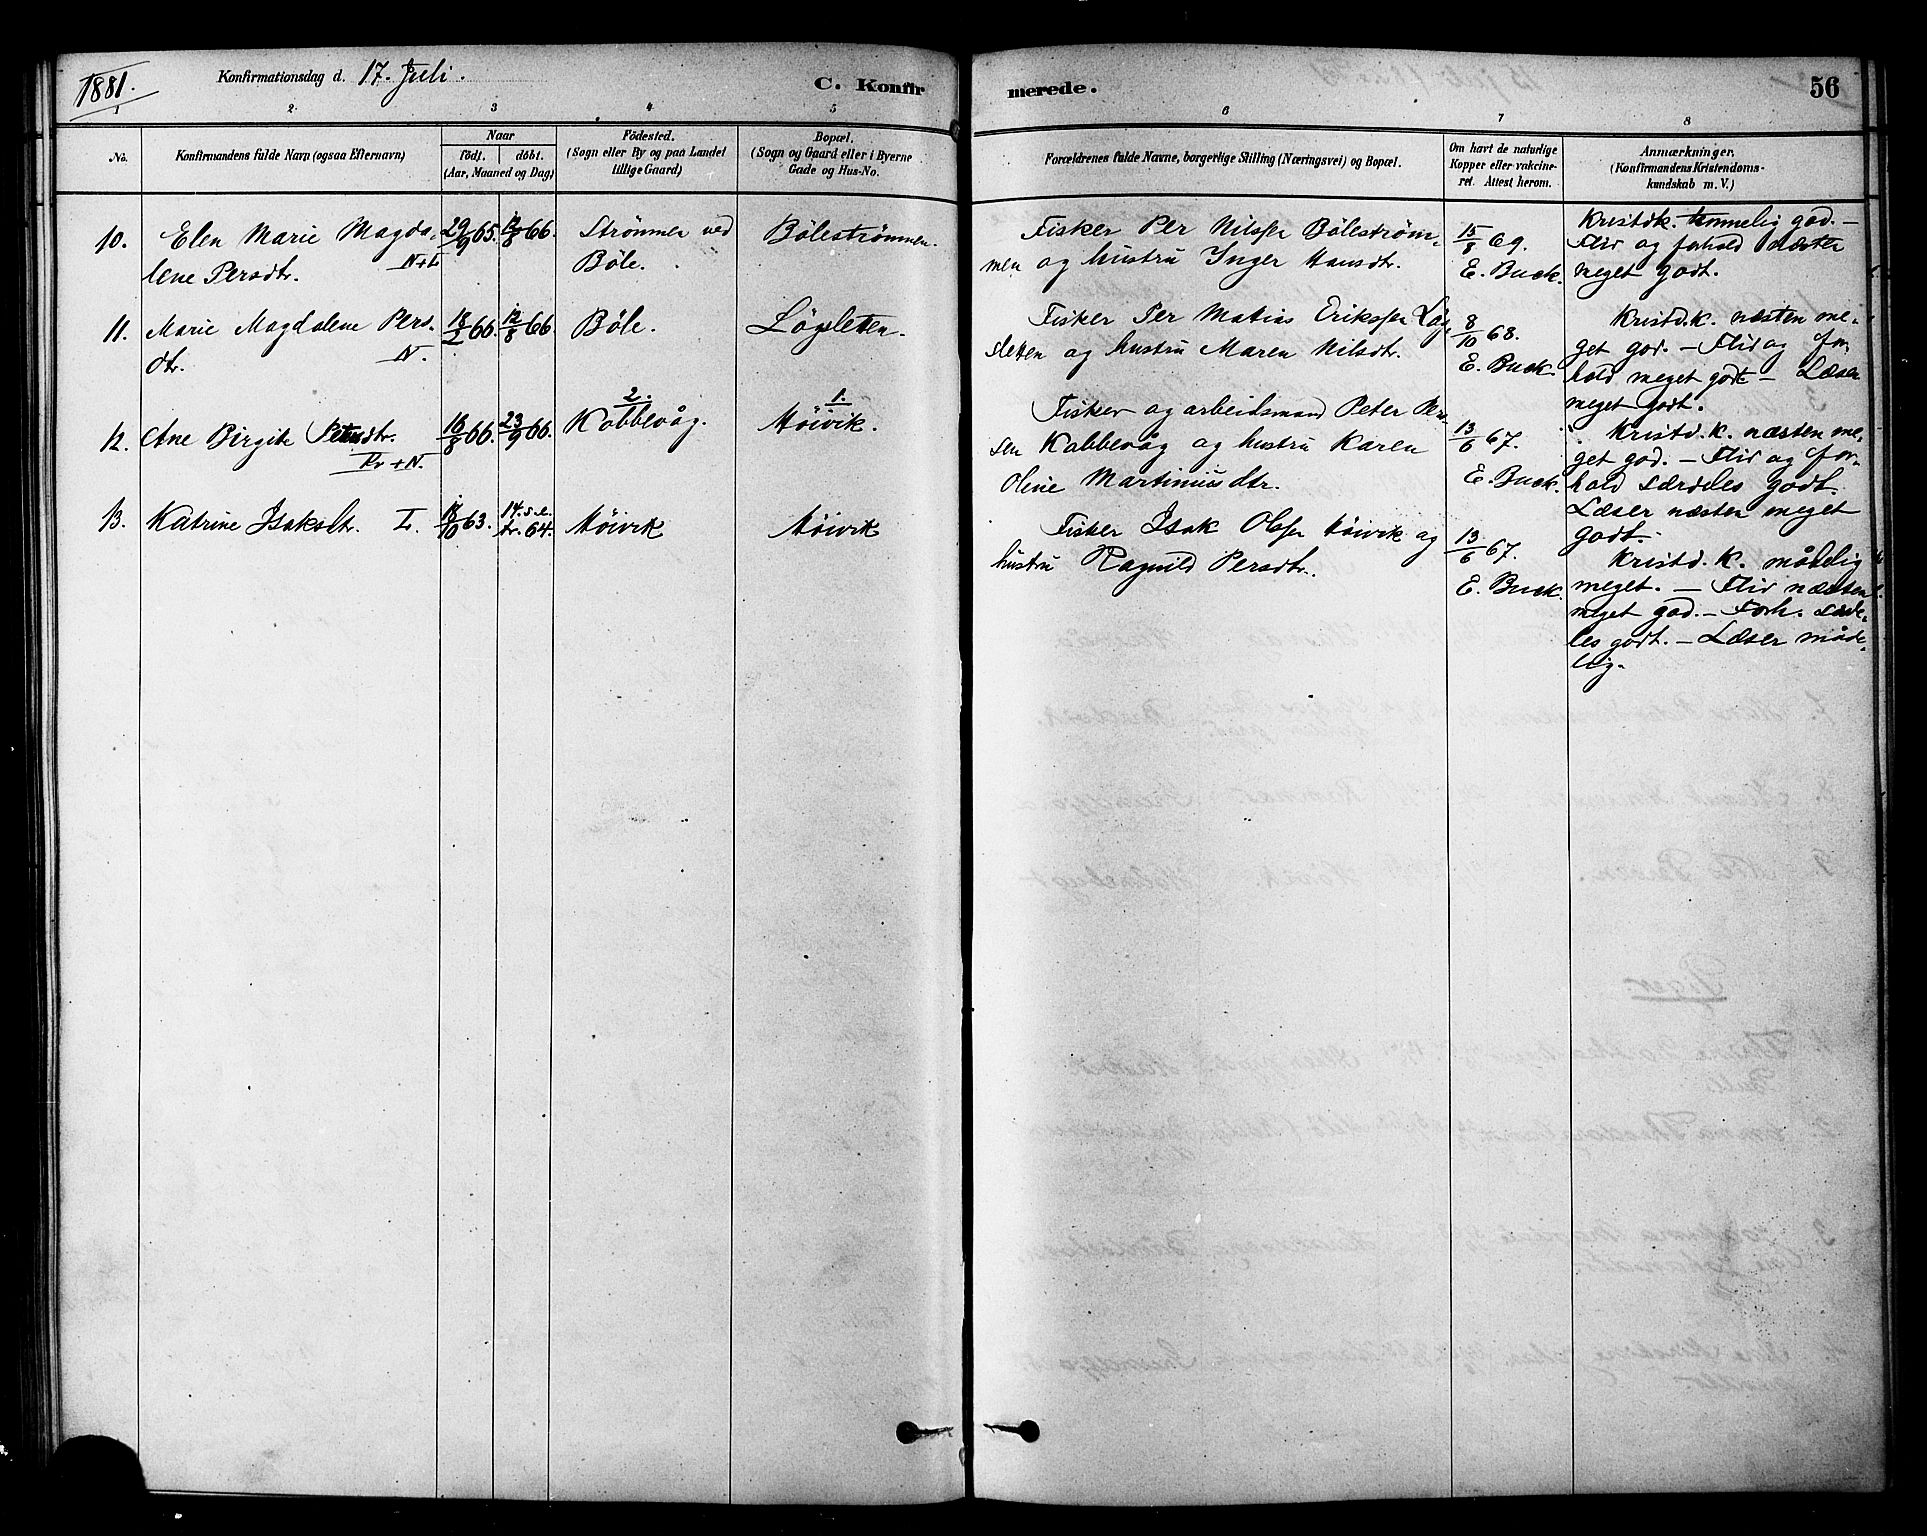 1881.
Konfirmationsdag d. 17. Juli.
C. Konfir
merede.
56
1 2 3 4 5 6 7 8
No.
Konfirmandens fulde Navn (ogsaa Efternavn)
Naar
födt. döbt.
(Aar, Maaned og Dag)
Födested.
(Sogn eller By og paa Landet
tillige Gaard)
Bopæl.
(Sogn og Gaard eller i Byerne
Gade og Hus-No.
Forældrenes fulde Navne, borgerlige Stilling (Næringsvei) og Bopæl.
Om havt de naturlige
Kopper eller vakcine-
ret. Attest herom.
Anmærkninger.
(Konfirmandens Kristendoms-
kundskab m. V.)
10. Elen Marie Magda-
lene Persdtr. N+L
29/9 65. 12/8 66.
Strømmen ved
Böle.
Bölestrømmen.
Fisker Per Nilssen Bölestrøm-
men og hustru Inger Hansdtr.
15/8 69.
E. Buck.
Kristdk. temmelig god. –
Flid og forhold næsten
meget godt.
11. Marie Magdalene Pers-
dtr. N.
18/2 66. 12/8 66
Böle.
Lögsletten.
Fisker Per Matias Erikssen Lög-
sletten og hustru Maren Nilsdtr.
8/10 68.
E. Buck.
Kristd.k. næsten me-
get god. – Flid og for-
hold meget godt – Læser
meget godt.
12. Ane Birgite Petersdtr.
Kv + N.
16/8 66. 23/9 66.
2.
Kobbevåg.
1.
Møivik.
Fisker og arbeidsmand Peter Han-
sen Kobbevåg og hustru Karen
Oline Martiniusdtr.
13/6 67.
E. Buck.
Kristd.k. næsten me-
get god. – Flid og for-
hold særdeles godt.
Læser næsten meget
godt.
13. Katrine Isaksdtr. L.
18/10 63. 14. s.e.
tr. 64.
Møivik
Møivik
Fisker Isak Olsen Møivik og
hustru Ragnild Persdtr.
13/6 67.
E. Buck.
Kristd. K. mådelig
meget. – Flid næsten
meget god. – Forh. særde-
les godt. – Læser måde-
lig.